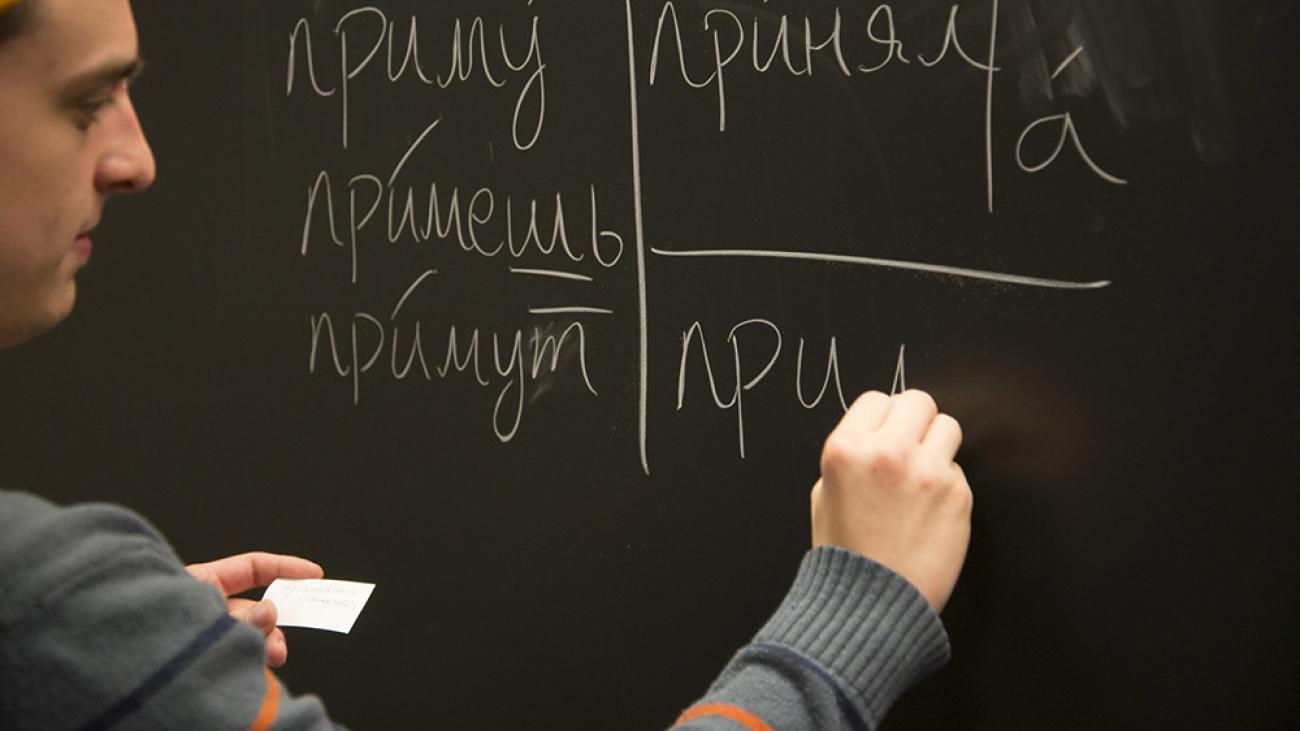 приму́
при́мешь
при́мут
принял
а́
при